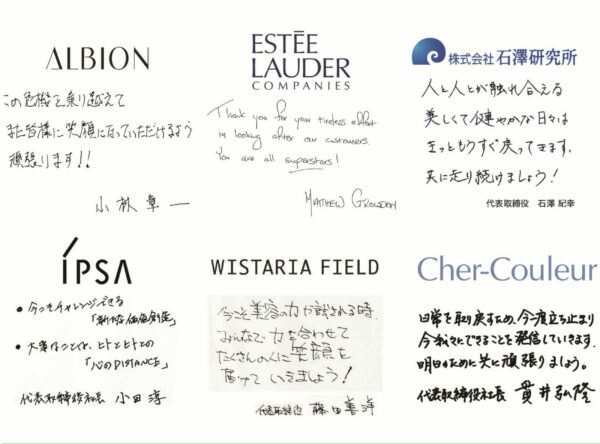 ALBION
この危機を乗り越えて
また皆様に笑顔になっていただけるよう
頑張ります!!
小林章一
ESTĒE
LAUDER
COMPANIES
Thank you for your tireless effort
in looking after our customers.
You are all superstars!
MATTHEW GROWDON
株式会社 石澤研究所
人と人とが触れ合える
美しくて健やかな日々は
きっともうすぐ戻ってきます。
共に走り続けましょう!
代表取締役 石澤 紀幸
IPSA
• 今こそチャレンジできる
「新たな価値創造」
• 大事なことは、ヒトとヒトとの
「心のDISTANCE」
代表取締役社長 小田 淳
WISTARIA FIELD
今こそ美容の力が試される時。
みんなで力を合わせて
たくさんの人に笑顔を
届けていきましょう!
代表取締役 藤田善洋
Cher-Couleur
日常を取り戻すため、今一度立ち止まり
今私たちにできることを発信していきます。
明日のために共に頑張りましょう。
代表取締役社長 貫井弘隆